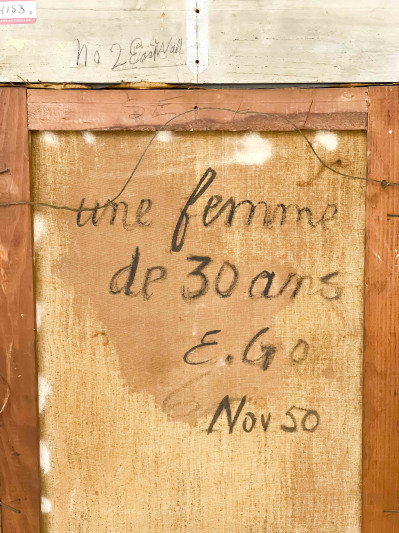 4153
No 2 East Wall
une femme
de 30 ans
E. Go
Nov 50